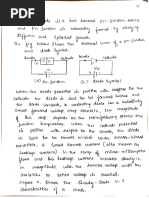 diode is a two terminal pn-junction device
and pn-junction is normally formed by alloying
diffusion and epitaxial growth.
The fig below shows the internal view of a pn-junction
and diode symbol.
anode cathode anode cathode
a) Pn-Junction b) Diode Symbol
when the anode potential is positive with respect to the
cathode, the diode is said to be forward biased and
the diode conducts. A conducting diode has a relatively
small forward voltage drop across it and the magnitude
of this drop would depend on the manufacturing process and
junction temperature. when the cathode potential is
positive with respect to the anode, the diode
is said to be reverse biased. Under reverse biased
conditions, a small reverse current (also known as
leakage current) in the range of micro or milliampere
flows and this leakage current increases slowly
in magnitude with the reverse voltage until the
avalanche or zener voltage is reached.
Figure shows the steady-state V-I
characteristics of a diode.